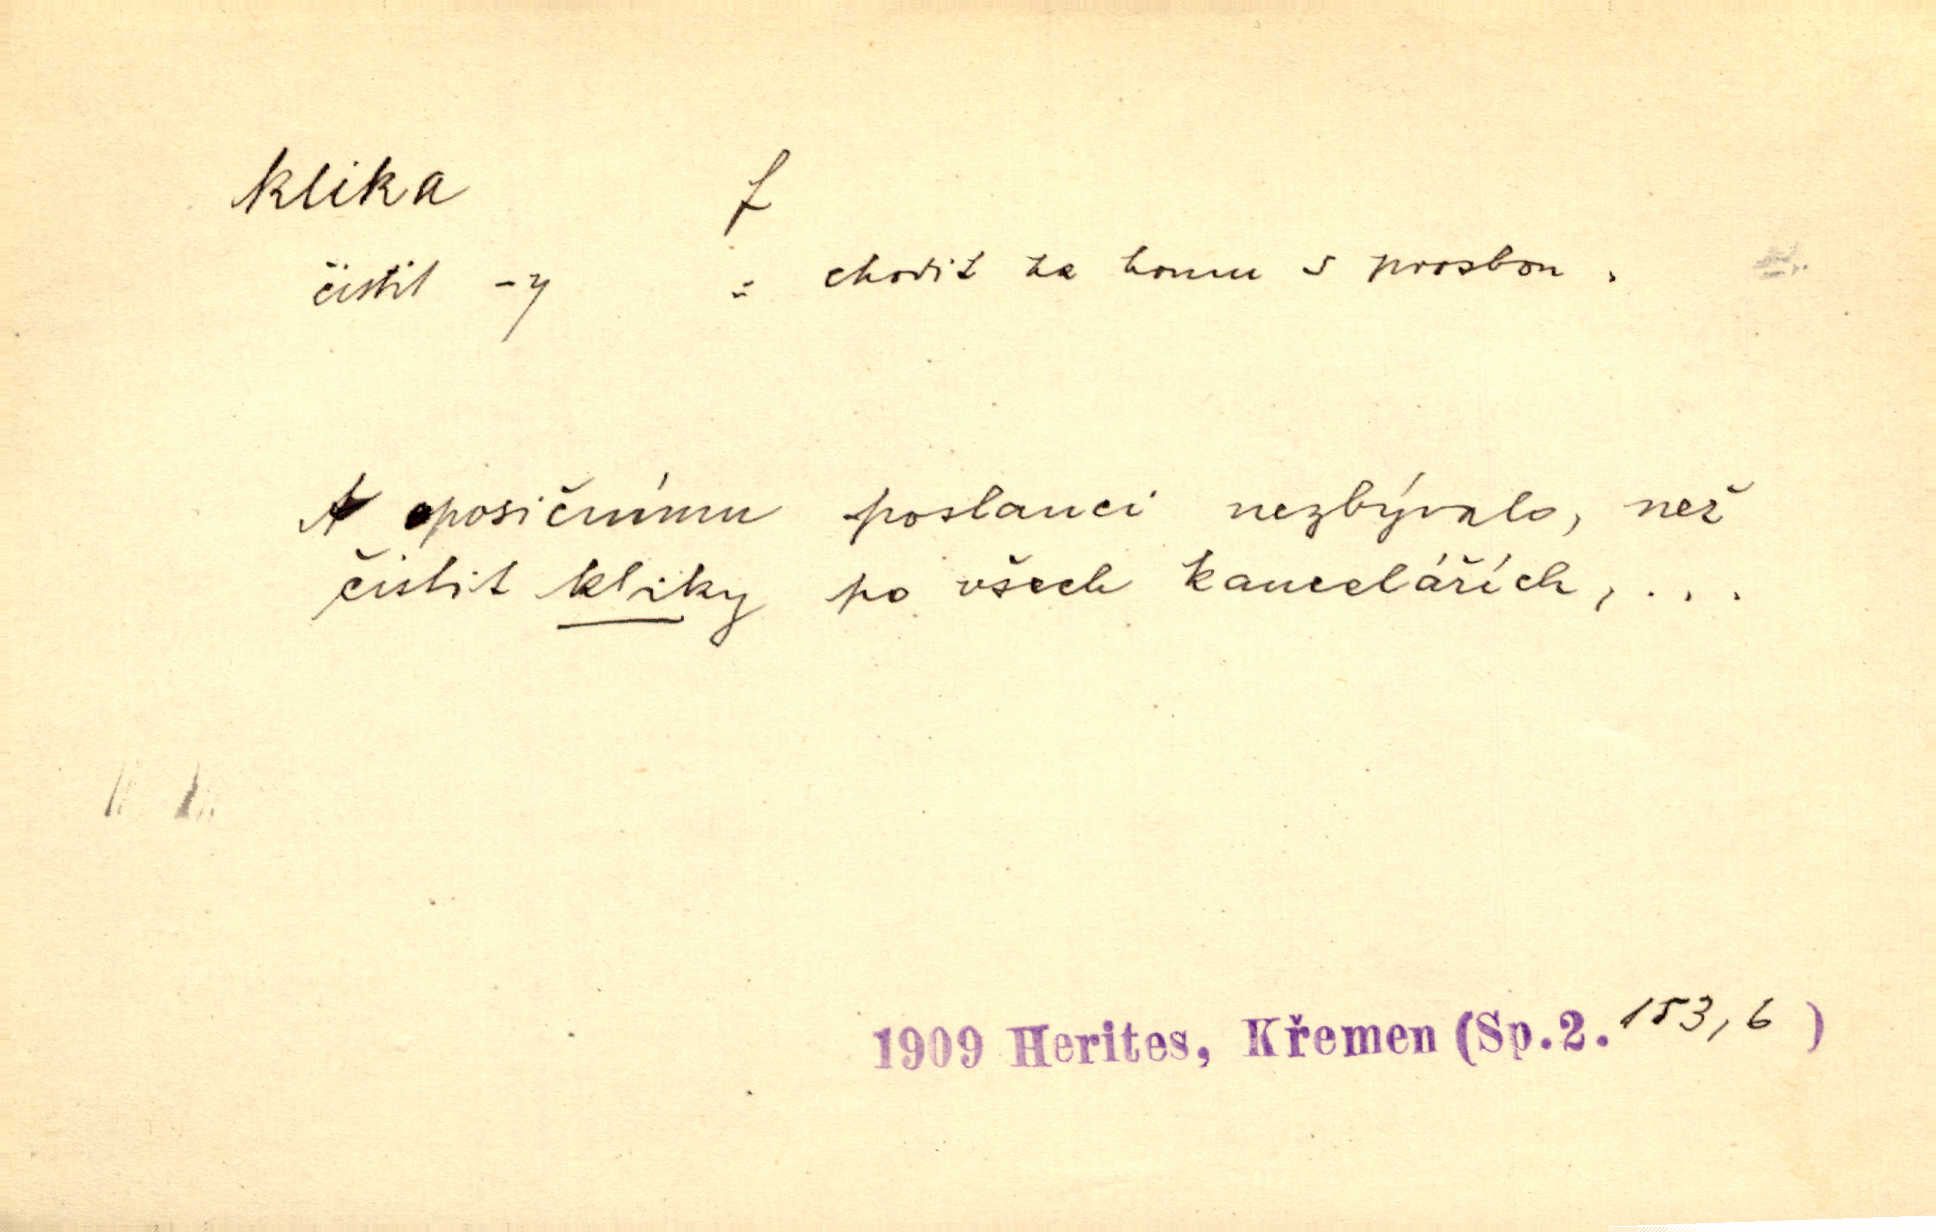 klika f
čistit -y = chodit za komu s prosbou.
A oposičnímu poslanci nezbývalo, než
čistit kliky po všech kancelářích, ...
1909 Herites, Křemen (Sp.2. 153,6 )